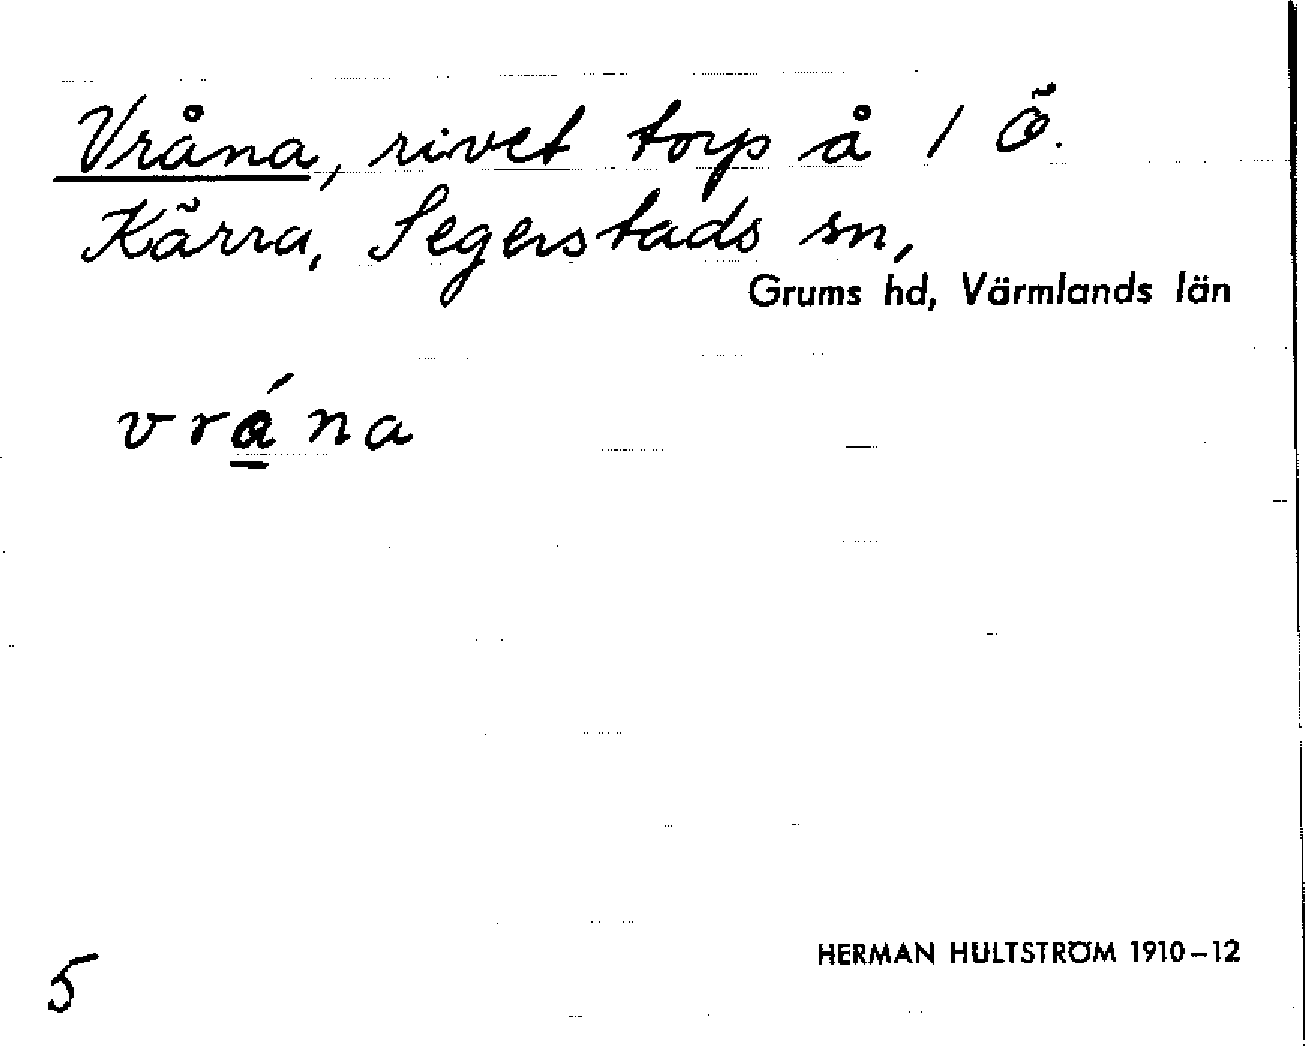 Vråna, rivet torp å 1 Ö.
Kärra, Segerstads sn,
Grums hd, Värmlands län
vrána
5
HERMAN HULTSTRÖM 1910–12